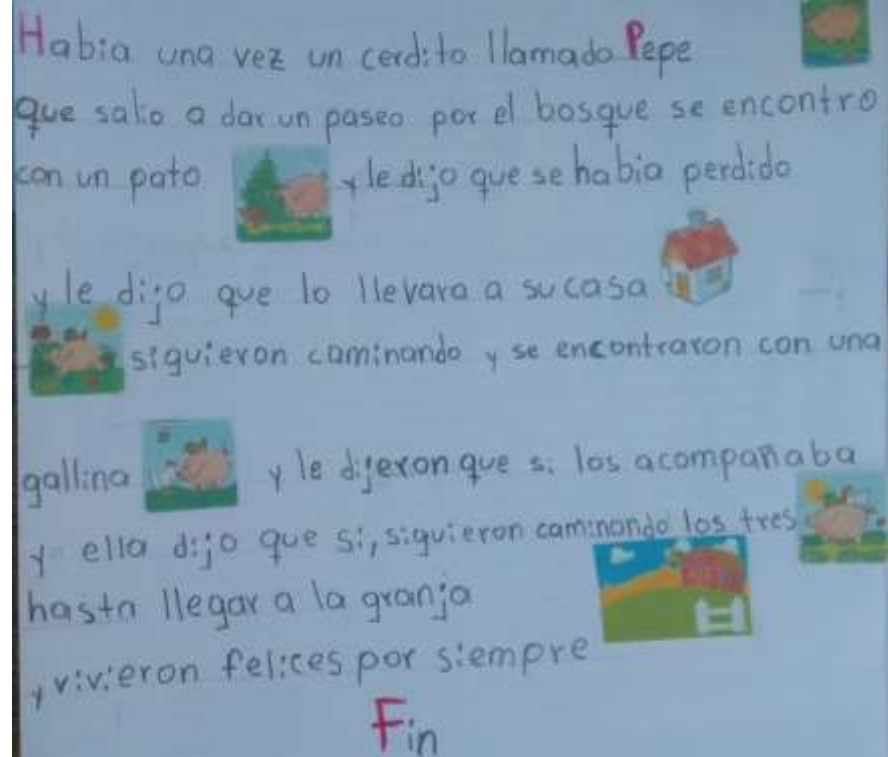 Habia una vez un cerdito llamado Pepe
que salio a dar un paseo por el bosque se encontro
con un pato y le dijo que se habia perdido
y le dijo que lo llevara a su casa
siguieron caminando y se encontraron con una
gallina y le dijeron que si los acompañaba
y ella dijo que si, siguieron caminando los tres
hasta llegar a la granja
y vivieron felices por siempre
Fin